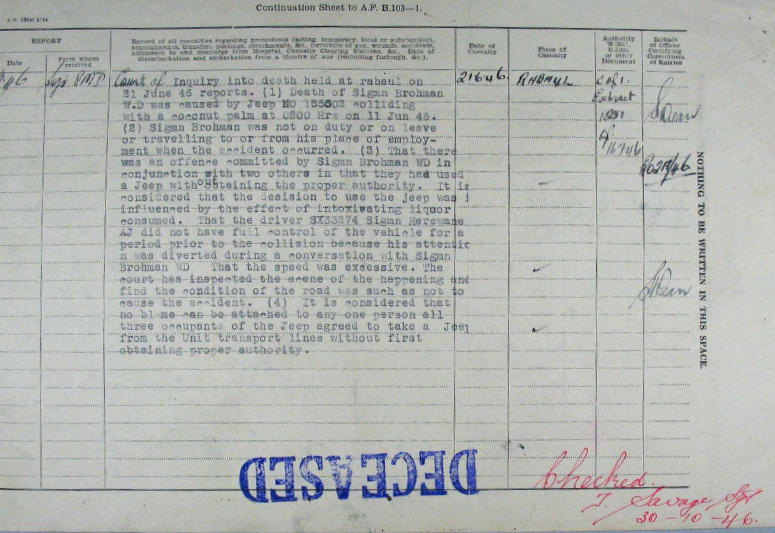 Continuation Sheet to A.F. B.103—1.
REPORT
Date
From whom received
Record of all casualties regarding promotions (acting, temporary, local or substantive),
appointments, transfers, postings, attachments, &c., forfeiture of pay, wounds, accidents,
admission to and discharge from Hospital, Casualty Clearing Stations, &c. Date of
disembarkation and embarkation from a theatre of war (including furlough, &c.).
Date of
Casualty
Place of
Casualty
Authority
or other
Document
Initials
of Officer
Certifying
Correctness
of Entries
Court of Inquiry into death held at rabaul on
21 June 46 reports. (1) Death of Sigmn Brohman
W.D was caused by Jeep NO 155502 colliding
with a coconut palm at 0200 Hrs on 11 Jun 46.
(2) Sigmn Brohman was not on duty or on leave
or travelling to or from his place of employ-
ment when the accident occurred. (3) That there
was an offence committed by Sigmn Brohman WD in
conjunction with two others in that they had used
a Jeep without obtaining the proper authority. It is
considered that the desision to use the Jeep was i
influenced by the effect of intoxivating liquor
consumed. That the driver SX33274 Sigmn Herewane
AJ did not have full control of the vehicle for a
period prior to the collision because his attentio
n was diverted during a conversation with Sigmn
Brohman WD That the speed was excessive. The
court has inspected the scene of the happening and
find the condition of the road was such as not to
cause the accident. (4) It is considered that
no blame can be attached to any one person all
three occupants of the Jeep agreed to take a Jeep
from the Unit transport lines without first
obtaining proper authority.
21 6 46.
RABAUL
C of I.
Extract
16/7/46
NOTHING TO BE WRITTEN IN THIS SPACE.
DECEASED
Checked.
T. Savage Sgt
30-10-46.